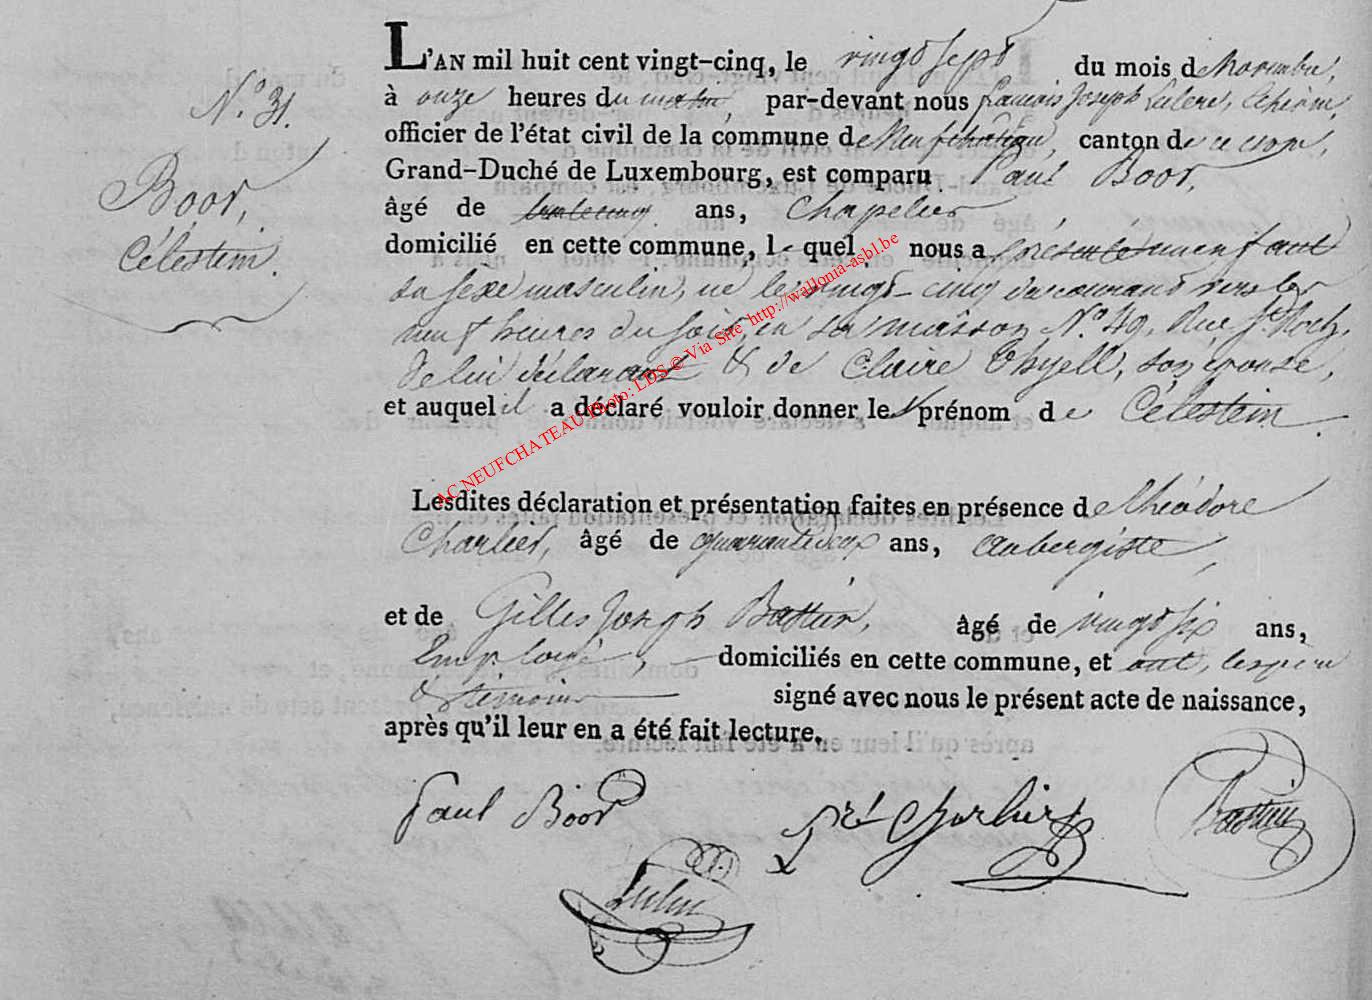 N.° 31.
Boor,
Célestin.
L'AN mil huit cent vingt-cinq, le vingt sept du mois de Novembre,
à onze heures du matin, par-devant nous françois Joseph
officier de l'état civil de la commune de Neufchâteau, canton de ce nom,
Grand-Duché de Luxembourg, est comparu Paul Boor,
âgé de trente cinq ans, Chapelier
domicilié en cette commune, le quel nous a présenté un enfant
du sexe masculin, né le vingt-cinq du courant vers les
neuf heures du soir, en sa maison N.° 49, Rue St Roch,
de lui déclarant & de Claire Thyell, son épouse,
et auquel il a déclaré vouloir donner le prénom de Célestin.
Lesdites déclaration et présentation faites en présence de Théodore
Charlier, âgé de quarante deux ans, aubergiste,
et de Gilles Joseph Battin, âgé de vingt six ans,
Employé, domiciliés en cette commune, et ont, les père
& témoins signé avec nous le présent acte de naissance,
après qu'il leur en a été fait lecture.
Paul Boor
Charlier
Battin
AC NEUFCHATEAU Photo: LDS © Via Site http://wallonia-asbl.be